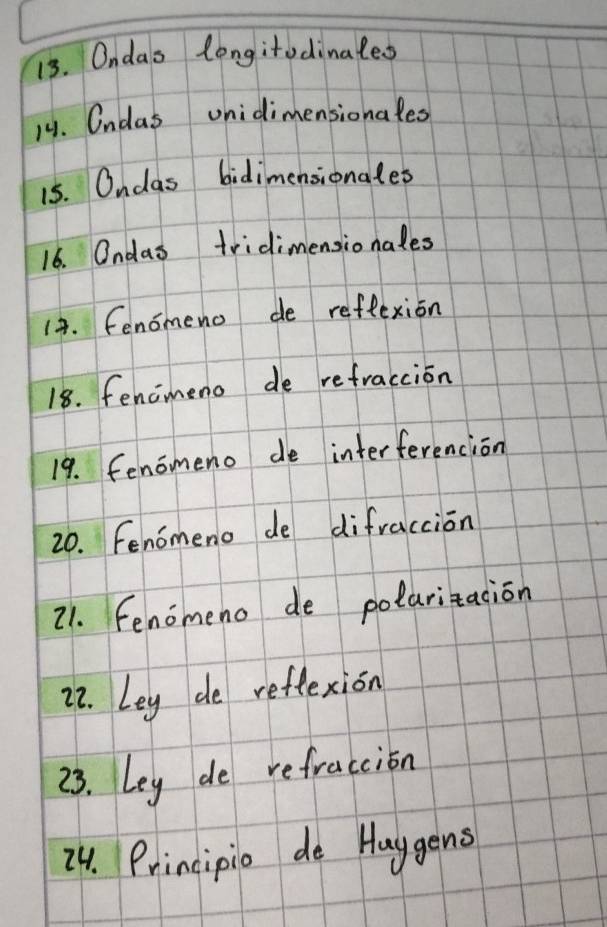 13. Ondas longitudinales
14. Ondas unidimensionales
15. Ondas bidimensionales
16. Ondas tridimensionales
17. Fenómeno de reflexión
18. Fenómeno de refracción
19. Fenómeno de interferencíón
20. Fenómeno de difracción
21. Fenómeno de polarización
22. Ley de reflexión
23. Ley de refracción
24. Principio de Huygens